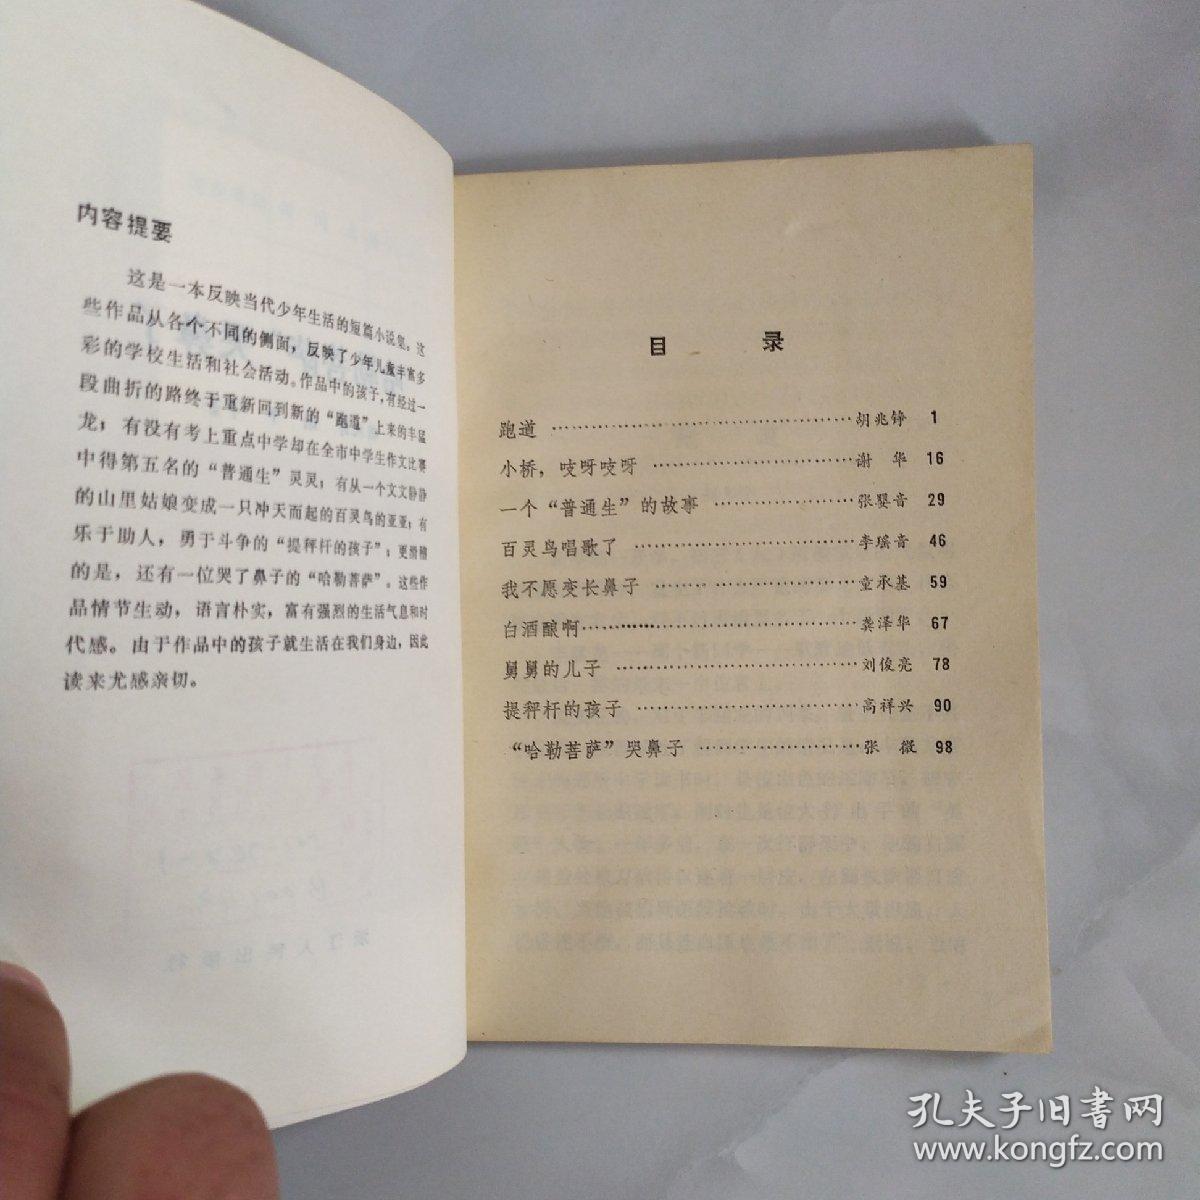 内容提要
这是一本反映当代少年生活的短篇小说集。这
些作品从各个不同的侧面，反映了少年儿童丰富多
彩的学校生活和社会活动。作品中的孩子，有经过一
段曲折的路终于重新回到新的“跑道”上来的丰猛
龙；有没有考上重点中学却在全市中学生作文比赛
中得第五名的“普通生”灵灵；有从一个文文静静
的山里姑娘变成一只冲天而起的百灵鸟的亚亚；有
乐于助人，勇于斗争的“提秤杆的孩子”；更滑稽
的是，还有一位哭了鼻子的“哈勒菩萨”。这些作
品情节生动，语言朴实，富有强烈的生活气息和时
代感。由于作品中的孩子就生活在我们身边，因此
读来尤感亲切。
目 录
跑道 …… 胡兆铮 1
小桥，吱呀吱呀 …… 谢 华 16
一个“普通生”的故事 …… 张婴音 29
百灵鸟唱歌了 …… 李瑶音 46
我不愿变长鼻子 …… 童承基 59
白酒酿啊 …… 龚泽华 67
舅舅的儿子 …… 刘俊亮 78
提秤杆的孩子 …… 高祥兴 90
“哈勒菩萨”哭鼻子 …… 张 微 98
孔夫子旧书网
www.kongfz.com